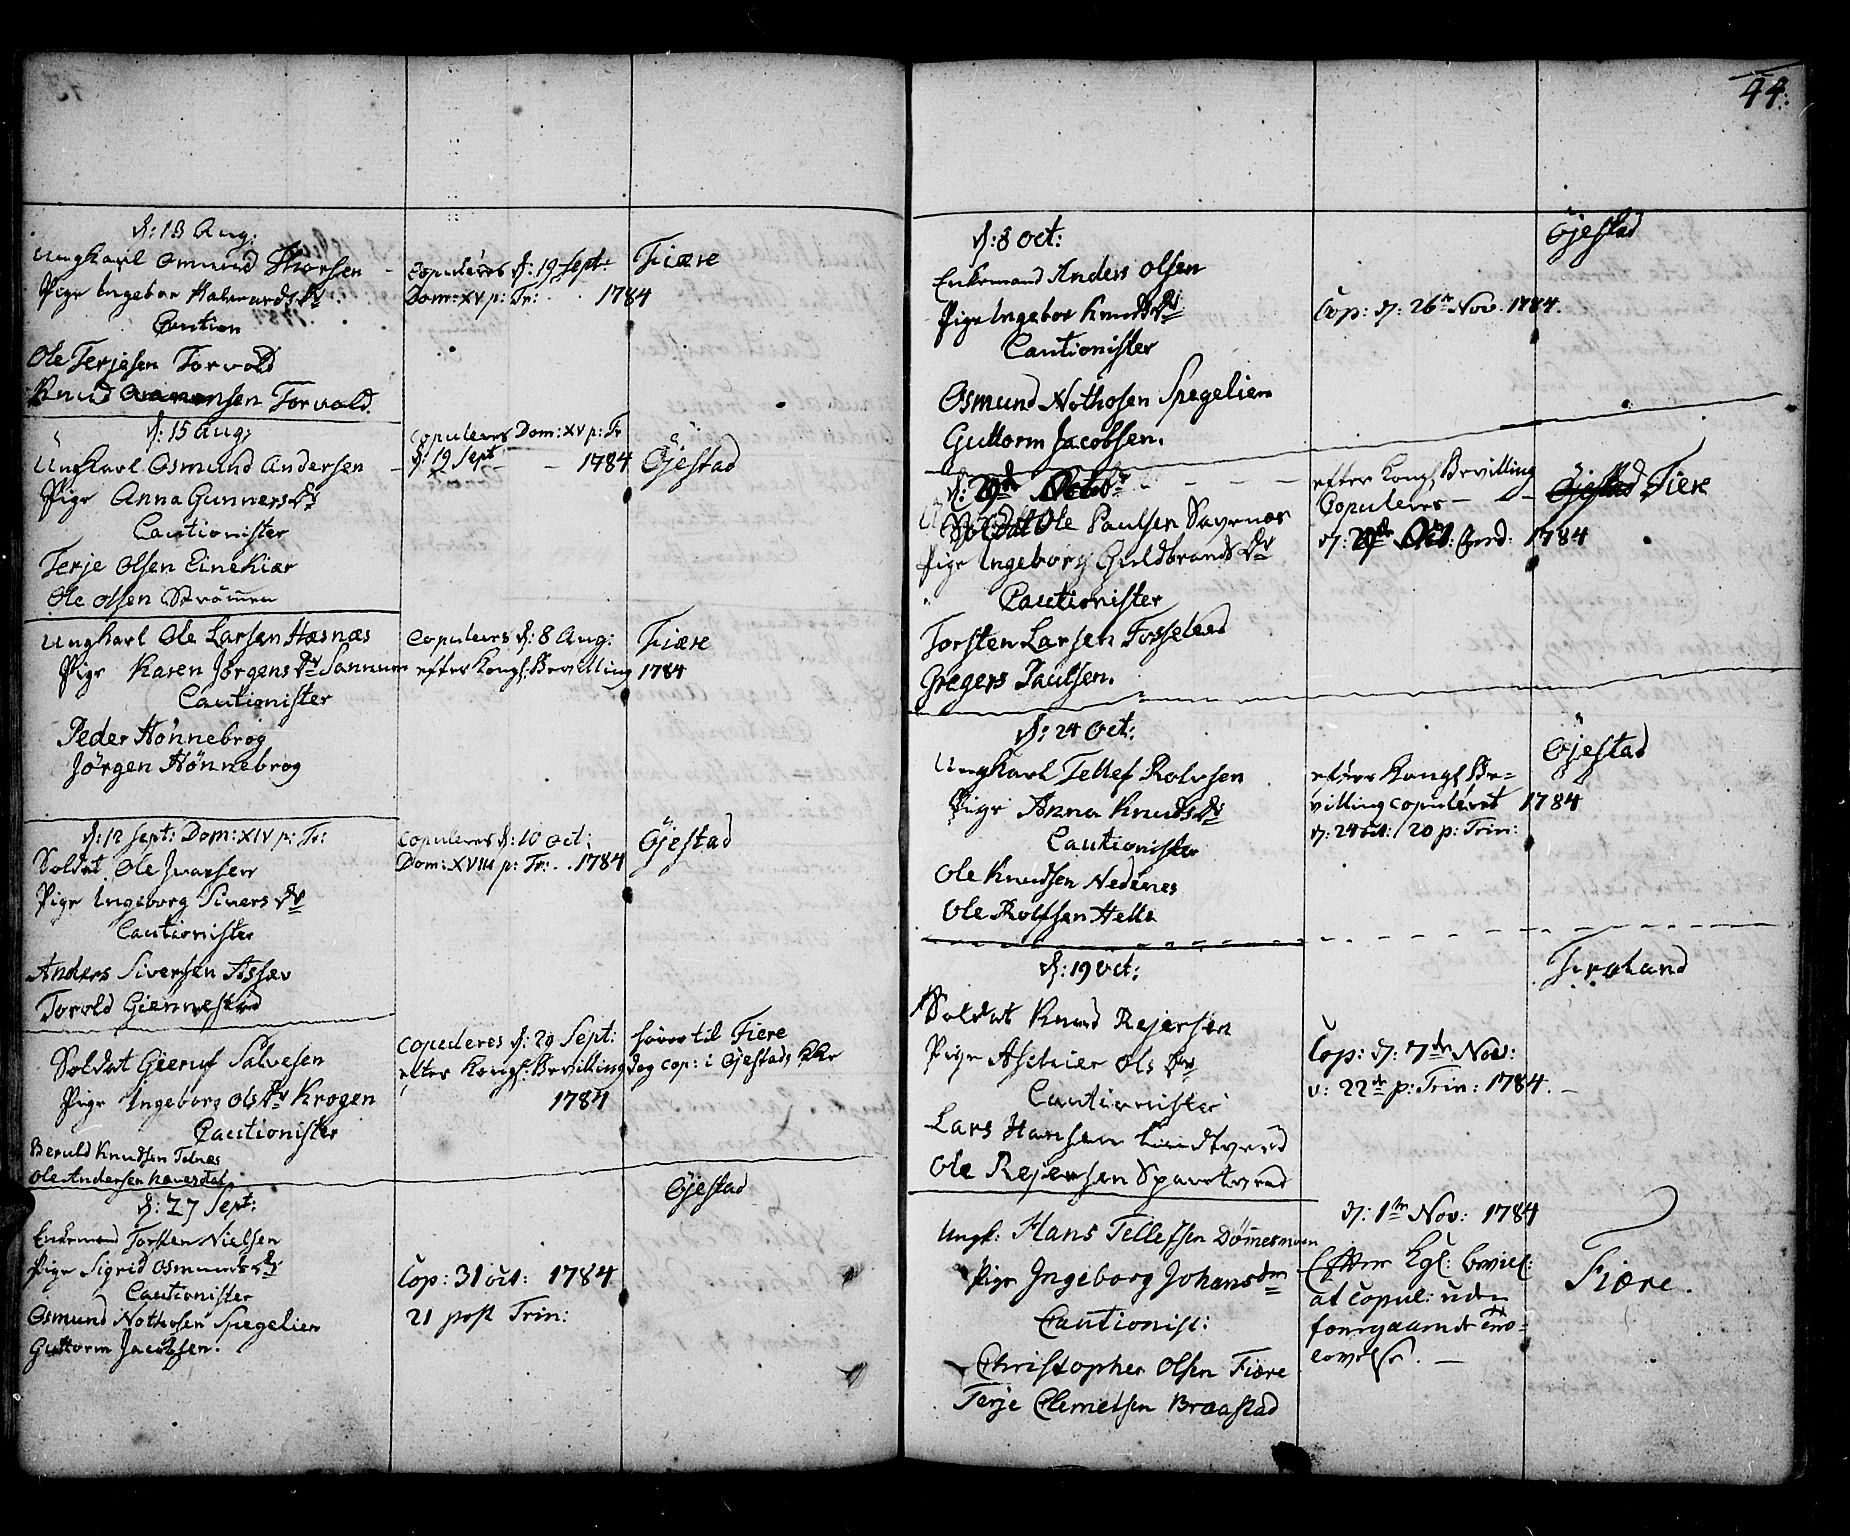 d: 13 Aug:
Ungkarl Omund Thorsen
Pige Ingebor Halvords Dr
Caution
Ole Terjesen Torvold
Knud Torvold.
copuleres d: 19 Sept:
Dom: XV p: Tr: . . 1784
Fiære
d: 15 Aug:
Ungkarl Osmund Andersen
Pige Anna Gunners Dr
Cautionister
Terje Olsen Einekiær
Ole Olsen Strömen
copuleres Dom: XV p: Tr
d: 19 Sept - - 1784
Öjestad
Ungkarl Ole Larsen Hæsnæs
Pige Karen Jörgens Dr Sannum
Cautionister
Peder Hönnebrog
Jörgen Hönnebrog
copulers d: 8 Aug:
efter Kongl: Bevilling 1784
Fiære
d: 12 Sept: Dom: XIV p: Tr:
Soldat Ole Ivarsen
Pige Ingeborg Sivers Dr
Cautionister
Anders Siversen Assev
Torold Giennestad
copuleres d: 10 Oct:
Dom: XVIII p: Tr: . . 1784
Öjestad
Soldat Gieruf Salvesen
Pige Ingeborg Ols Dr Krogen
Cautionister
Beruld Knudsen Tolnæs
Ole Andersen
copuleres d: 29 Sept:
efter Kongl: Bevilling
1784
hörer til Fiere
dog cop: i Öjestads Kke
d: 27 Sept:
Enkemand Torsten Nielsen
Pige Sigrid Osmunds Dr
Cautionister
Osmund Nothosen Spegelien
Guttorm Jacobsen.
Cop: 31 Oct: 1784
21 post Trin:
Öjestad
44:
d: 8 Oct:
Enkemand Anders Olsen
Pige Ingebor Knuds Dr
Cautionister
Osmund Nothosen Spegelien
Guttorm Jacobsen.
Cop: d: 26 Nov. 1784.
Öjestad
Soldat Ole Paulsen Sayrnæs
Pige Ingeborg Guldbrands Dr
Cautionister
Torsten Larsen Fosseleed
Gregers Paulsen.
efter Kongl Bevilling
Copuleres -
1784
Öjestad Fiere
d: 24 Oct:
Ungkarl Tellef Rolvsen
Pige Anna Knuds Dr
Cautionister
Ole Knudsen Nedenes
Ole Rolfsen Helle
efter Kongl Be=
villing copuleret 1784
d: 24 Oct: 20 p: Trin:
Öjestad
d: 19 Oct:
Soldat Knud Rejersen
Pige Ols Dr
Cautionister
Lars Hansen
Ole Rejersen
Cop: d: 7de Nov:
v: 22de p: Trin: 1784. -
Froland
Ungk: Hans Tellefsen Dömesmoen
Pige Ingeborg Johansdtr
Cautionist:
Christopher Olsen Fiære
Terje Clemetsen Braastad
d: 1te Nov: 1784
Efter Kgl: bevill:
at copul: uden
foregaaende Tro=
lovelse. -
Fiære.